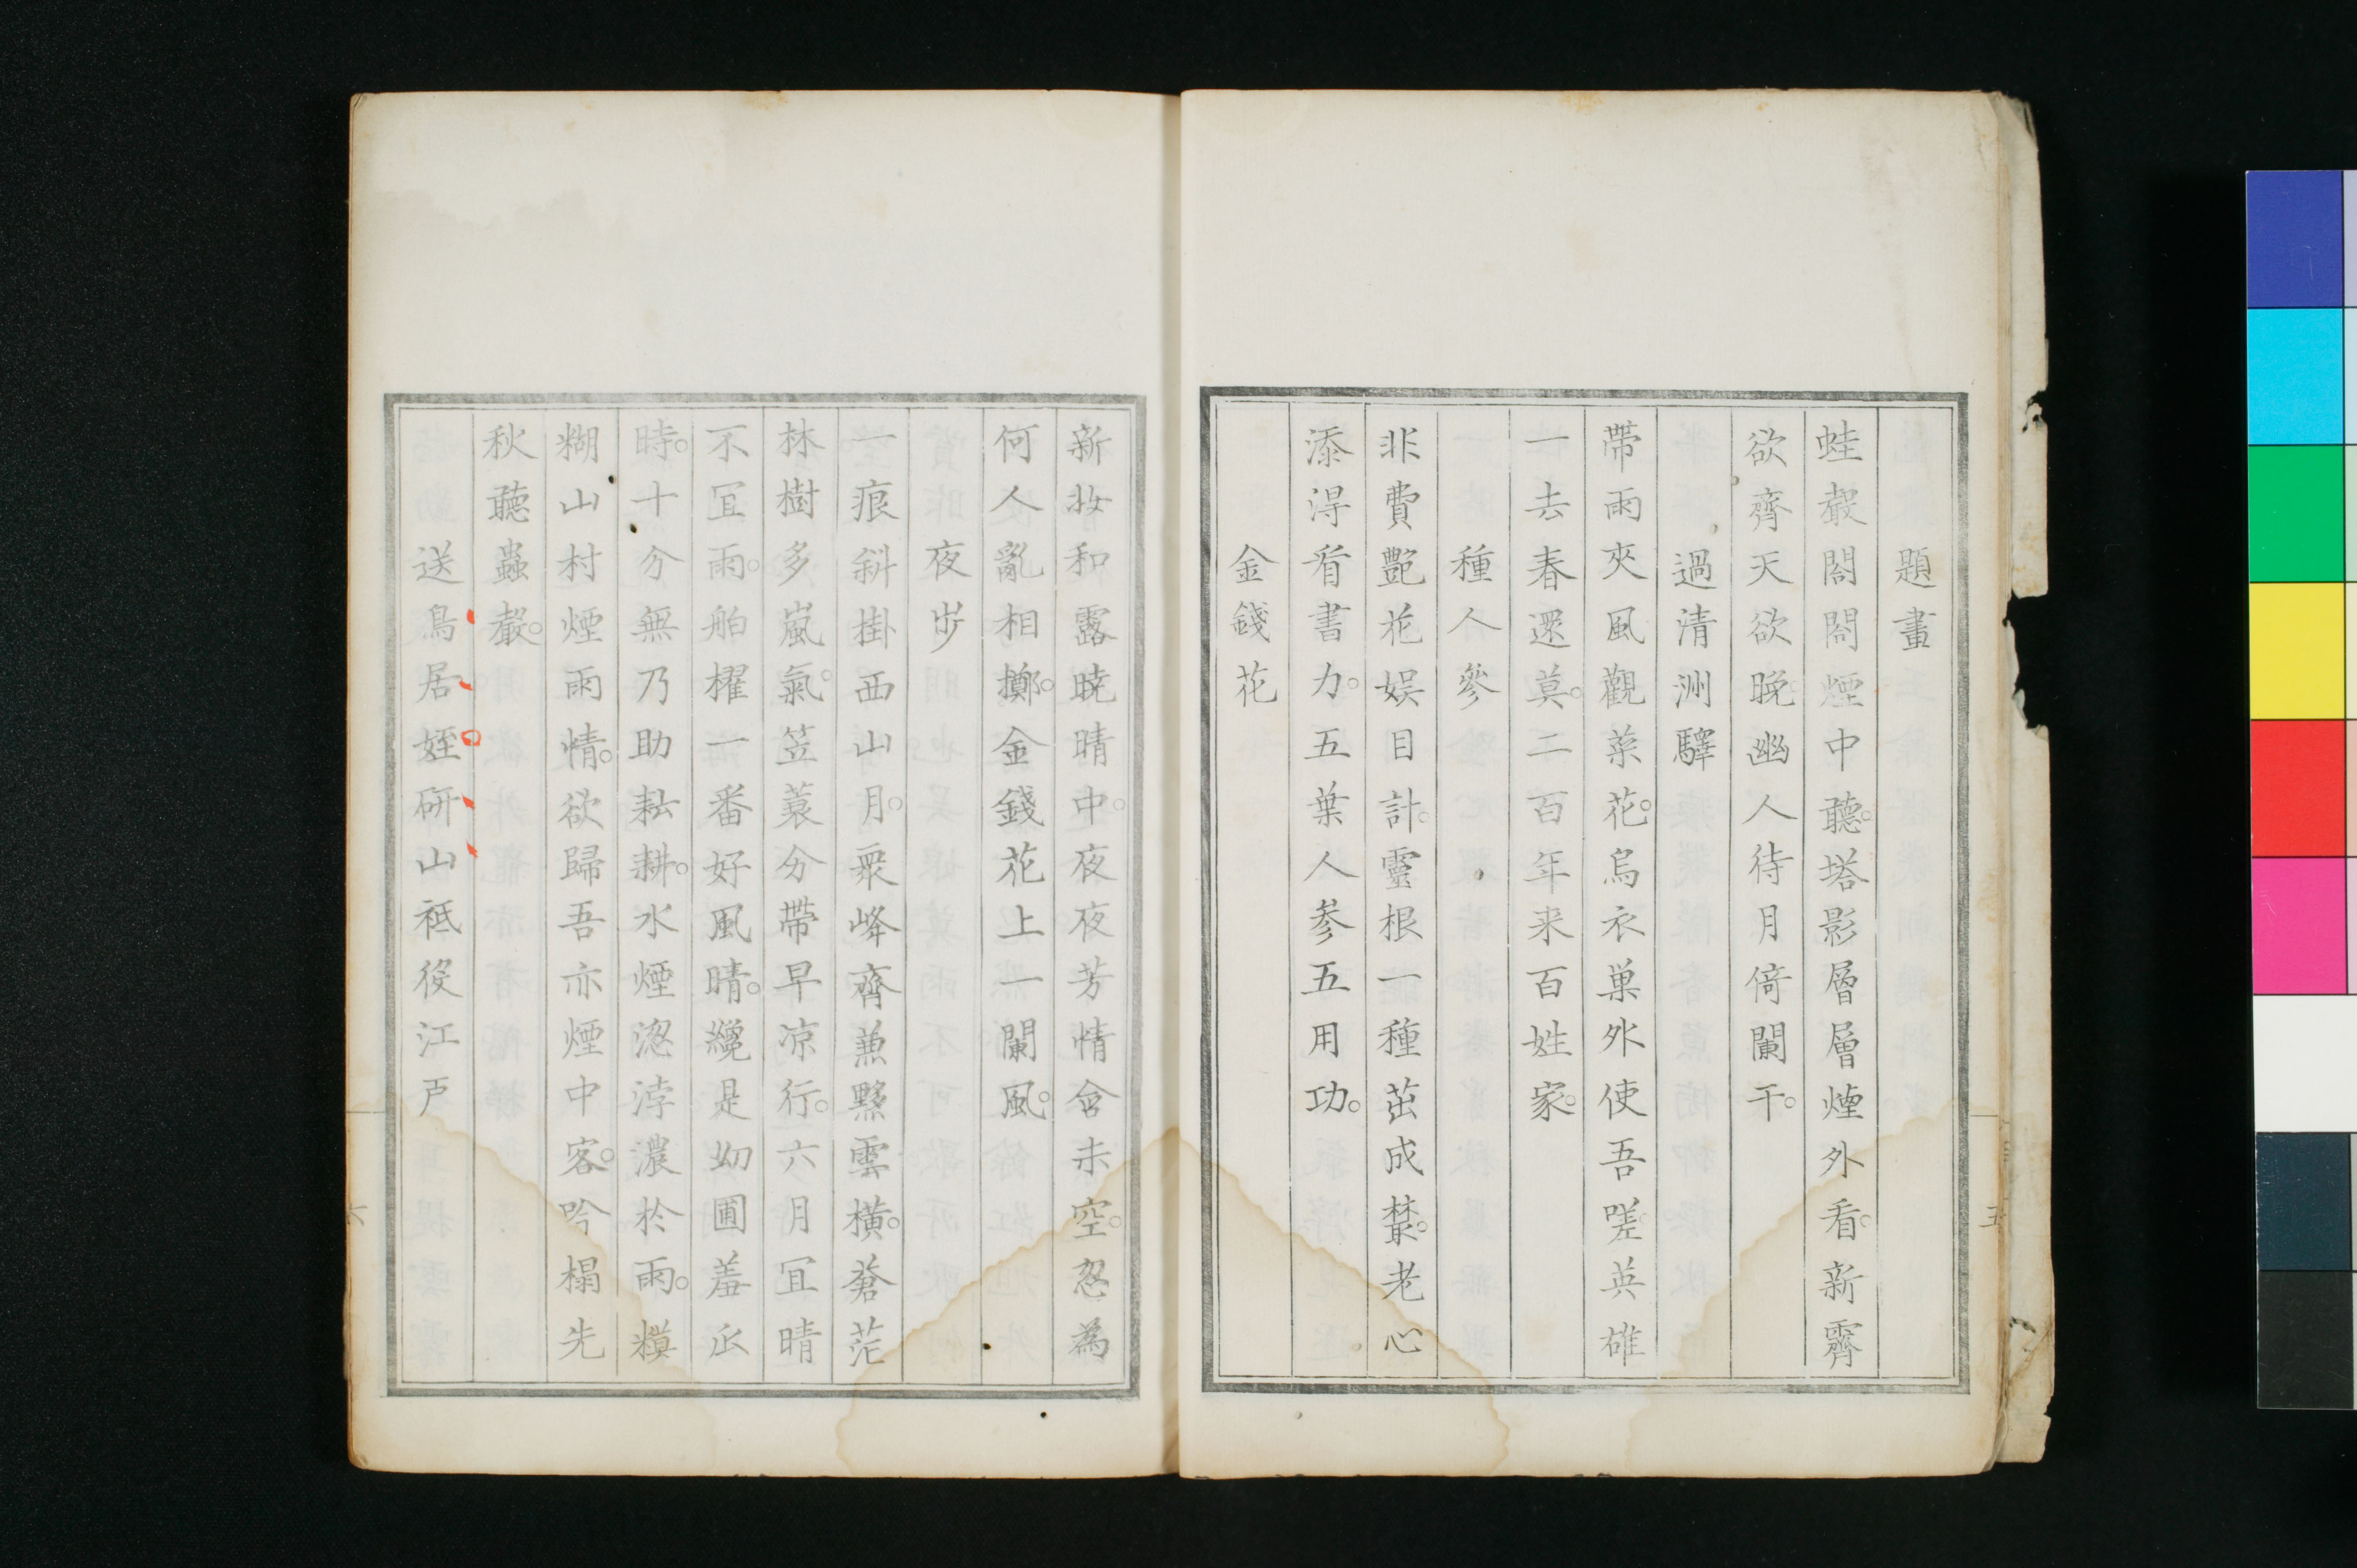 題畫
蛙聲閤閤煙中聽。塔影層層煙外看。新霽
欲齊天欲晚幽人待月倚闌干。
過清洲驛
帶雨夾風觀菜花。烏衣巢外使吾嗟英雄
一去春還莫。二百年来百姓家。
種人參
非費艷花娛目計。靈根一種茁成叢。老心
添得看書力。五葉人参五用功。
金錢花
五
新妝和露曉晴中。夜夜芳情含未空。忽為
何人亂相擲。金錢花上一闌風。
夜步
一痕斜掛西山月。衆峰齊兼黟雲橫。蒼茫
林樹多嵐氣。笠蓑分帶早凉行。六月宜晴
不宜雨。舶櫂一番好風晴。纔是幼圃羞瓜
時。十分無乃助耘耕。水煙浮濃於雨。糢
糊山村煙雨情。欲歸吾亦煙中客。吟榻先
秋聽蟲聲。
送鳥居姪研山祗役江戸
六